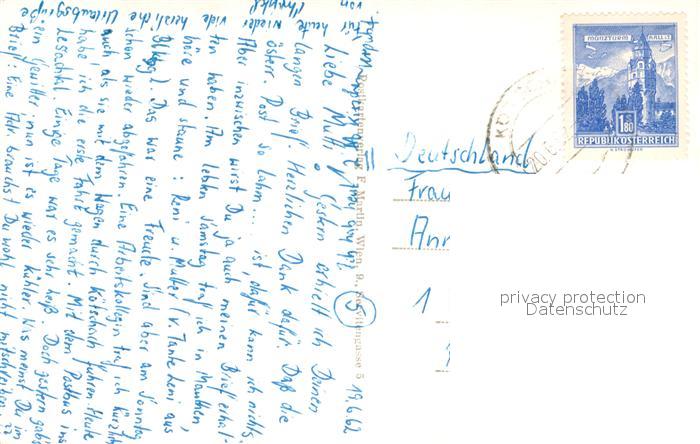 19.6.62
Liebe Mutti! Gestern erhielt ich Deinen
langen Brief. Herzlichen Dank dafür. Daß die
österr. Post so lahm.... ist, dafür kann ich nichts.
Aber inzwischen wirst Du ja auch meinen Brief erhal-
ten haben. Am letzten Samstag traf ich in Mauthen,
höre und staune: Leni u. Mutter (v. Tante Leni aus
). Das war eine Freude. Sind aber am Sonntag
schon wieder abgefahren. Eine Arbeitskollegin traf ich kürzlich
auch, als sie mit dem Wagen durch Kötschach fuhren. Heute
habe ich die erste Fahrt gemacht. Mit dem Postbus ins
Lesachtal. Einige Tage war es sehr heiß. Doch gestern gab's
ein Gewitter, nun ist es wieder kühler. Was meinst Du im
Brief: Eine Adr. brauchst Du wohl nicht mitschreiben,
für heute wieder viele herzliche Urlaubsgrüße
von
F. Martin, Wien, 9., Servitengasse 5
5
Deutschland
Frau
1
MÜNZTURM
HALL i. T.
1.80
REPUBLIK ÖSTERREICH
privacy protection
Datenschutz